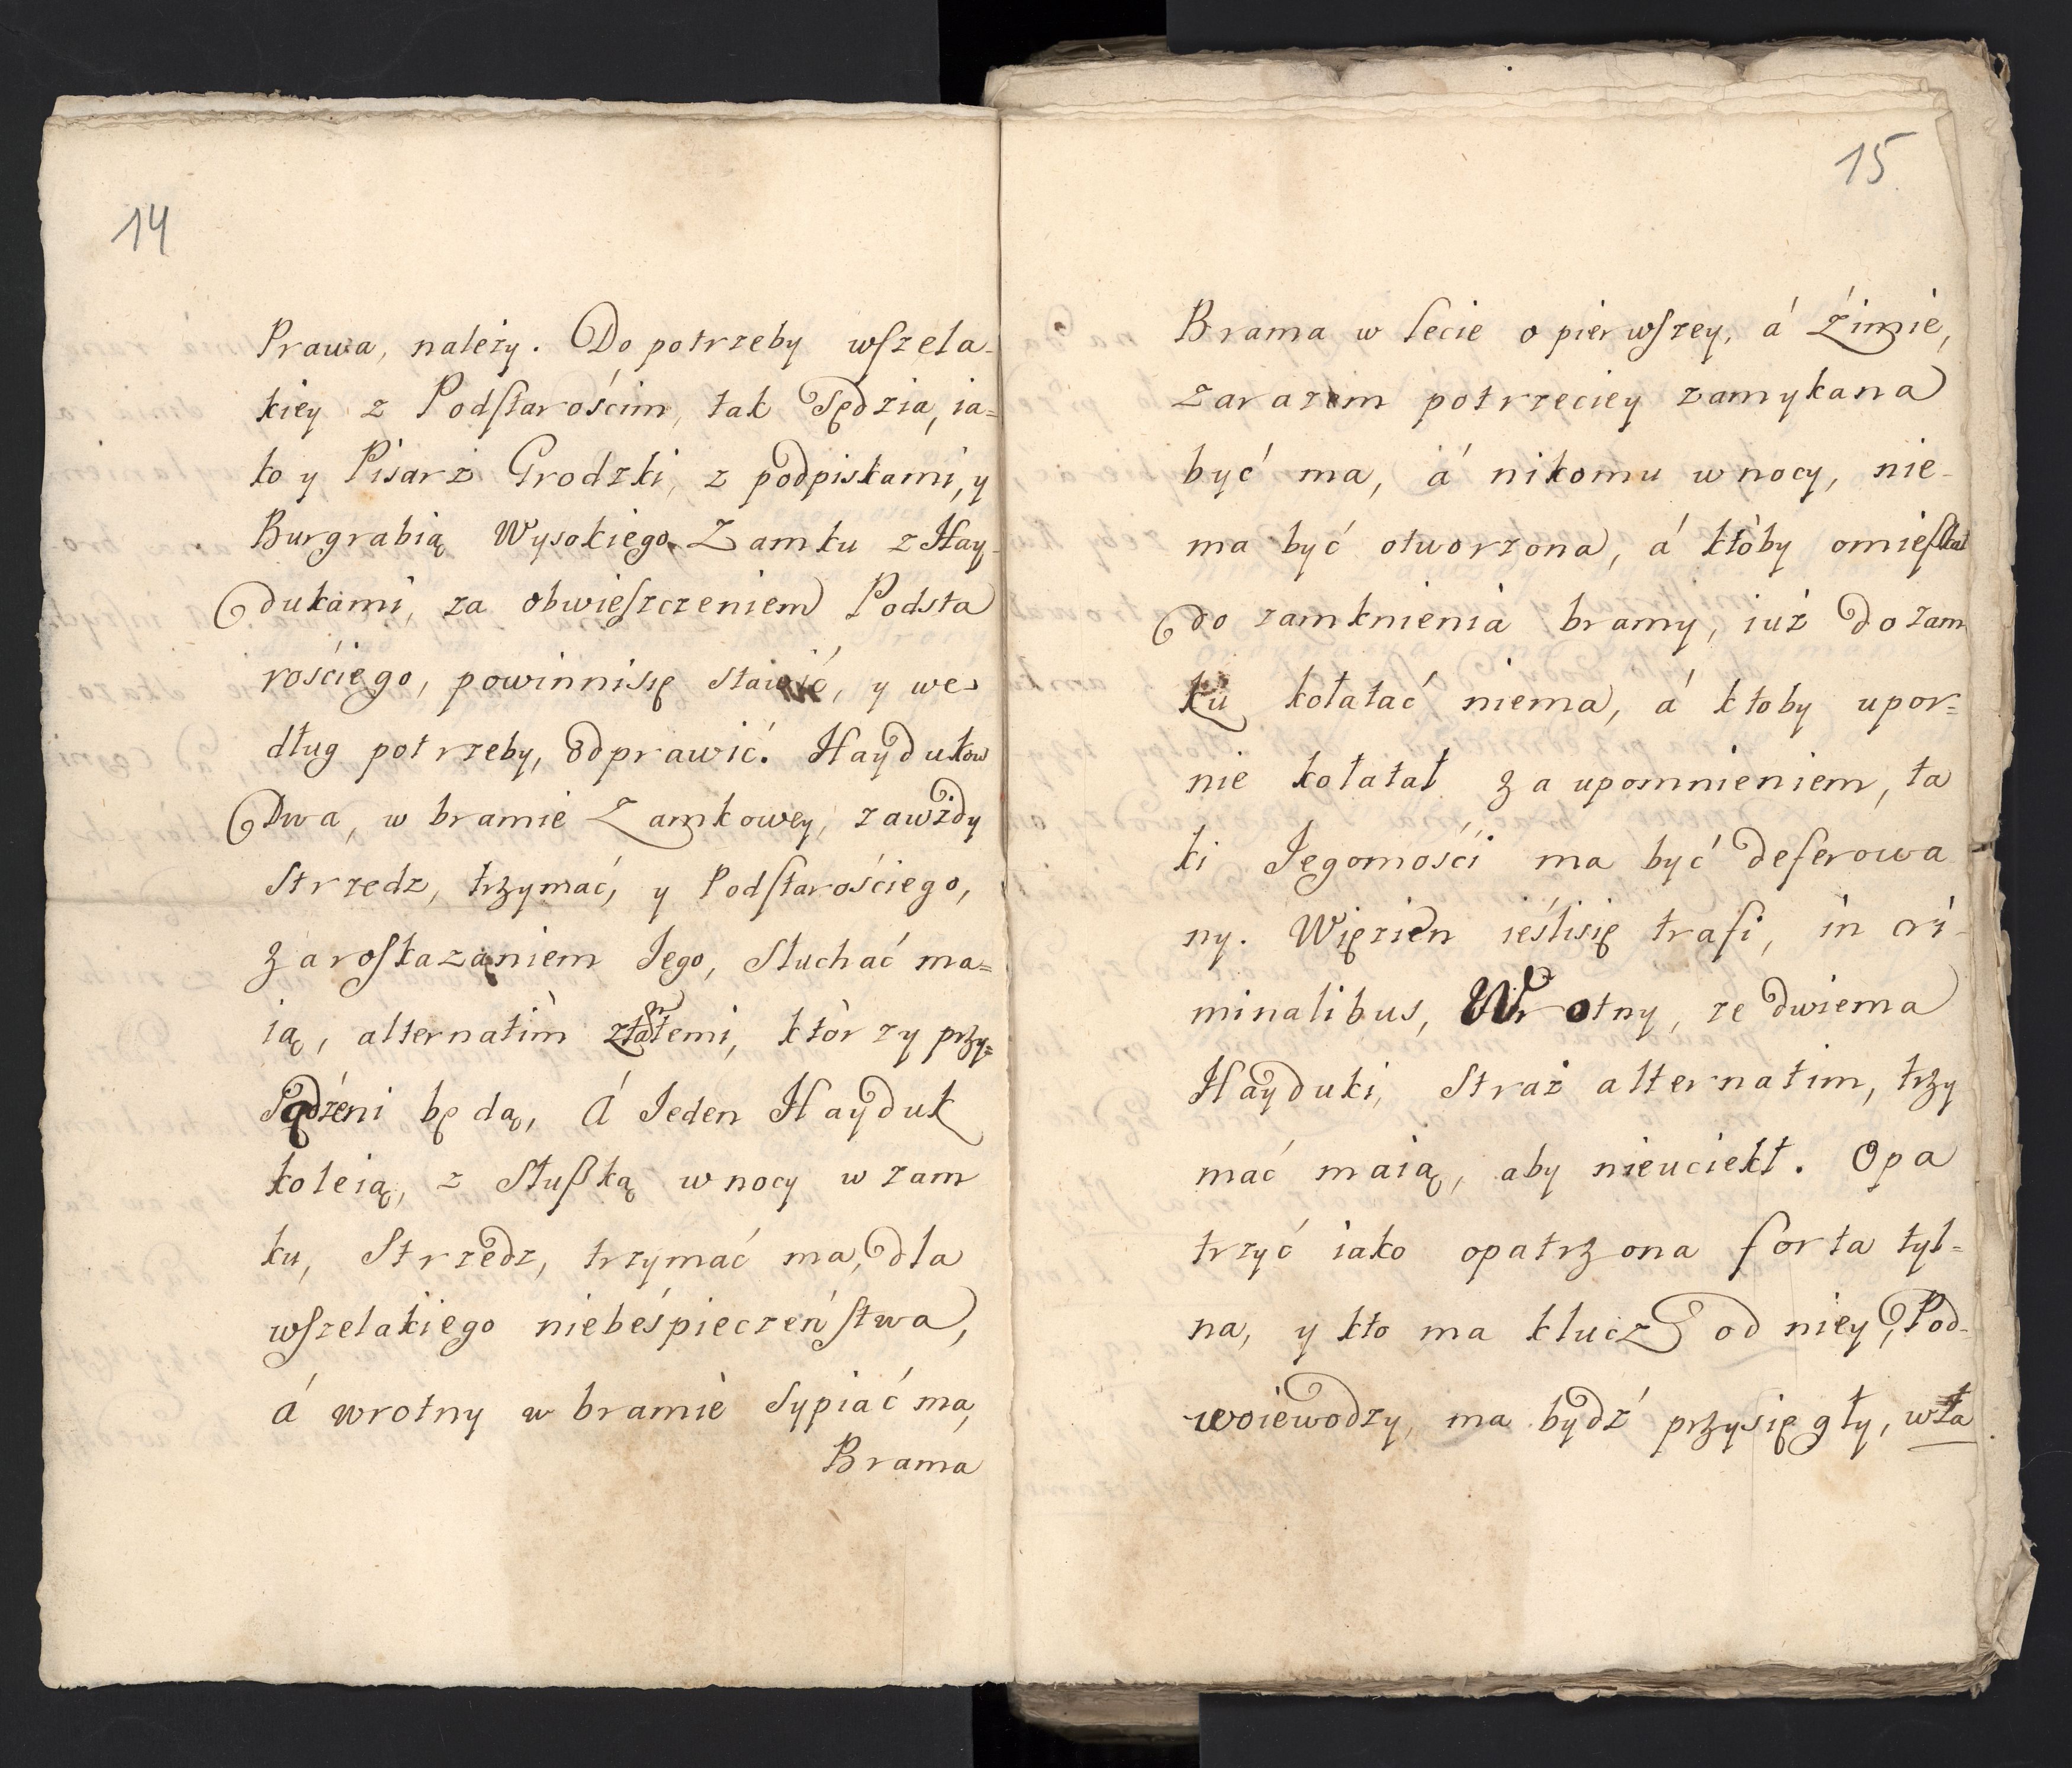 14
Prawa, należy. Do potrzeby wszela-
kiey z Podstarościm, tak Sędzia, ia=
ko y Pisarz Grodzki, z podpiskami, y
Burgrabią Wysokiego Zamku z Hay-
dukami, za obwieszczeniem Podsta
rościego, powinnisię stawić, y we
dług potrzeby, odprawić. Hayduków
Dwa, w bramie Zamkowey, zawżdy
Strzedz, trzymać, y Podstarościego,
za roskazaniem Jego, słuchać ma=
ią, alternatim z temi, którzy przy=
sądzeni będą, á Jeden Hayduk
koleią, z Słußką w nocy w zam
ku, Strzedz, trzymać ma, dla
wszelakiego niebeśpieczeństwa,
á wrotny w bramie Sypiać ma,
Brama
15
Brama w lecie o pierwszey, á Źimie,
zarazem potrzeciey zamykana
być ma, á nikomu w nocy, nie-
ma być otworzona, á któby omieszkał
do zamknienia bramy, iuż do zam
ku kołatać niema, á ktoby upor=
nie kołatał za upomnieniem, ta
ki Jegomośći ma być deferowa
ny. Więzień ieślisię trafi, in cri-
minalibus, Wrotny, ze dwiema
Hayduki, Straż alternatim, trzy
mać maią, aby nieuciekł. Opa
trzyć iako opatrzona forta tyl=
na, y kto ma klucz od niey, Pod-
woiewodzy, ma bydź przysięgły, wła